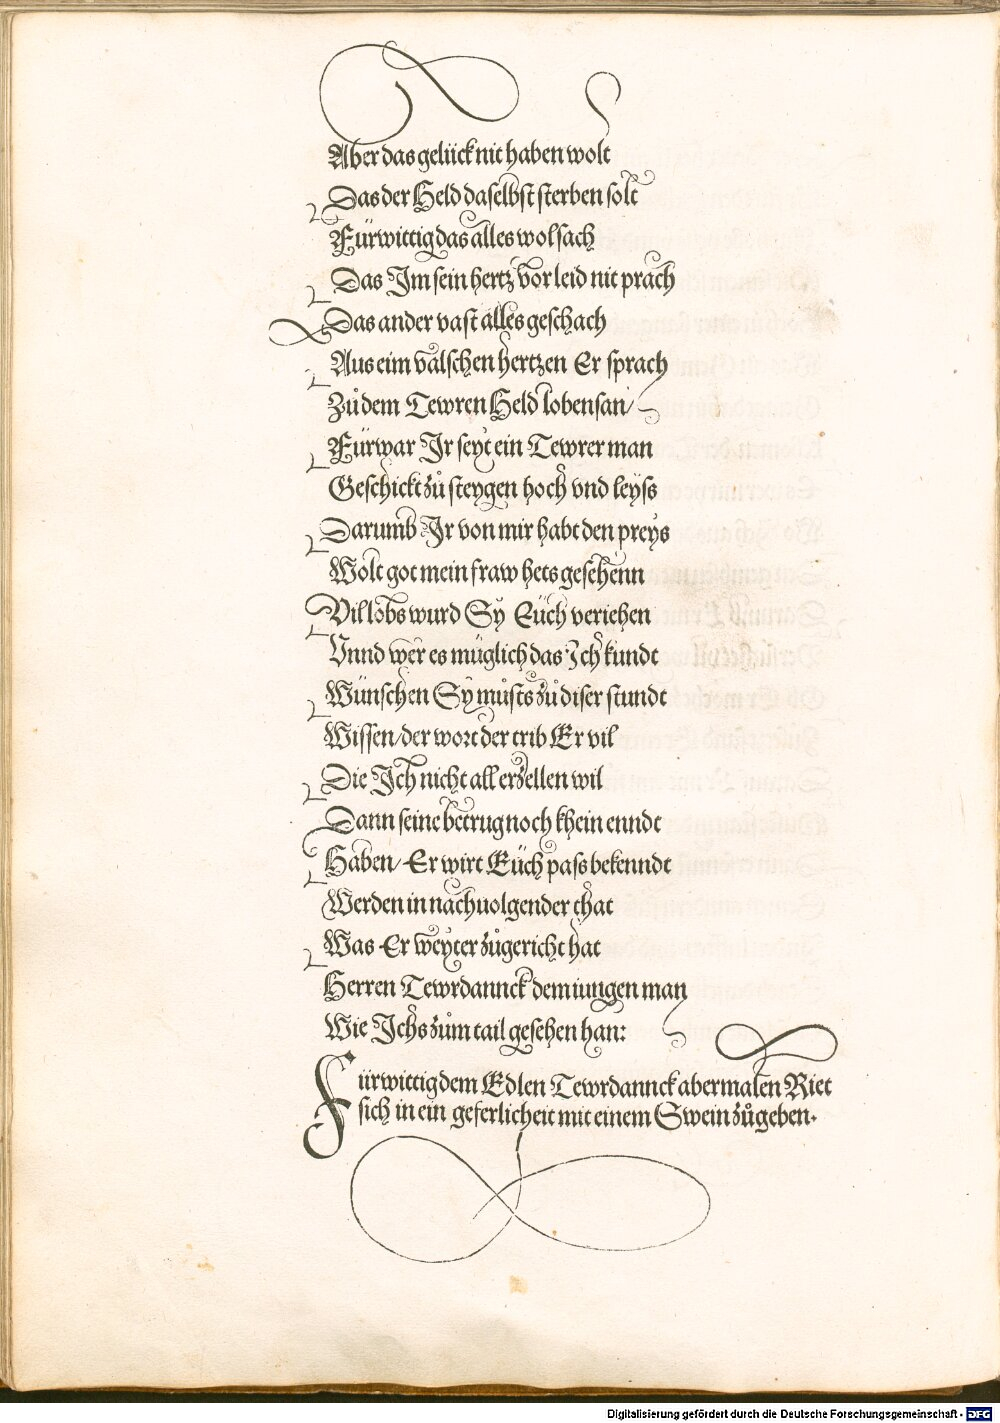 Aber das gelück nit haben wolt
Das der Held daselbst sterben solt
Fürwittig das alles wol sach
Das Im sein hertz vor leid nit prach
Das ander vast alles geschach
Aus eim valschen hertzen Er sprach
Zů dem Tewren Held lobensan/
Fürwar Ir seyt ein Tewrer man
Geschickt zů steygen hoch vnd leyss
Darumb Ir von mir habt den preys
Wolt got mein fraw hets gesehenn
Vil lobs wurd Sy Eüch veriehen
Vnnd wer es müglich das Ich kundt
Wünschen Sy můsts zů diser stundt
Wissen/ der wort der trib Er vil
Die Ich nicht all erzellen wil
Dann seine betrug noch khein enndt
Haben/ Er wirt Eüch pass bekenndt
Werden in nachuolgender that
Was Er weyter zůgericht hat
Herren Tewrdannck dem iungen man
Wie Ichs zům tail gesehen han:
Fürwittig dem Edlen Tewrdannck abermalen Riet
sich in ein geferlicheit mit einem Swein zůgeben.
Digitalisierung gefördert durch die Deutsche Forschungsgemeinschaft - DFG